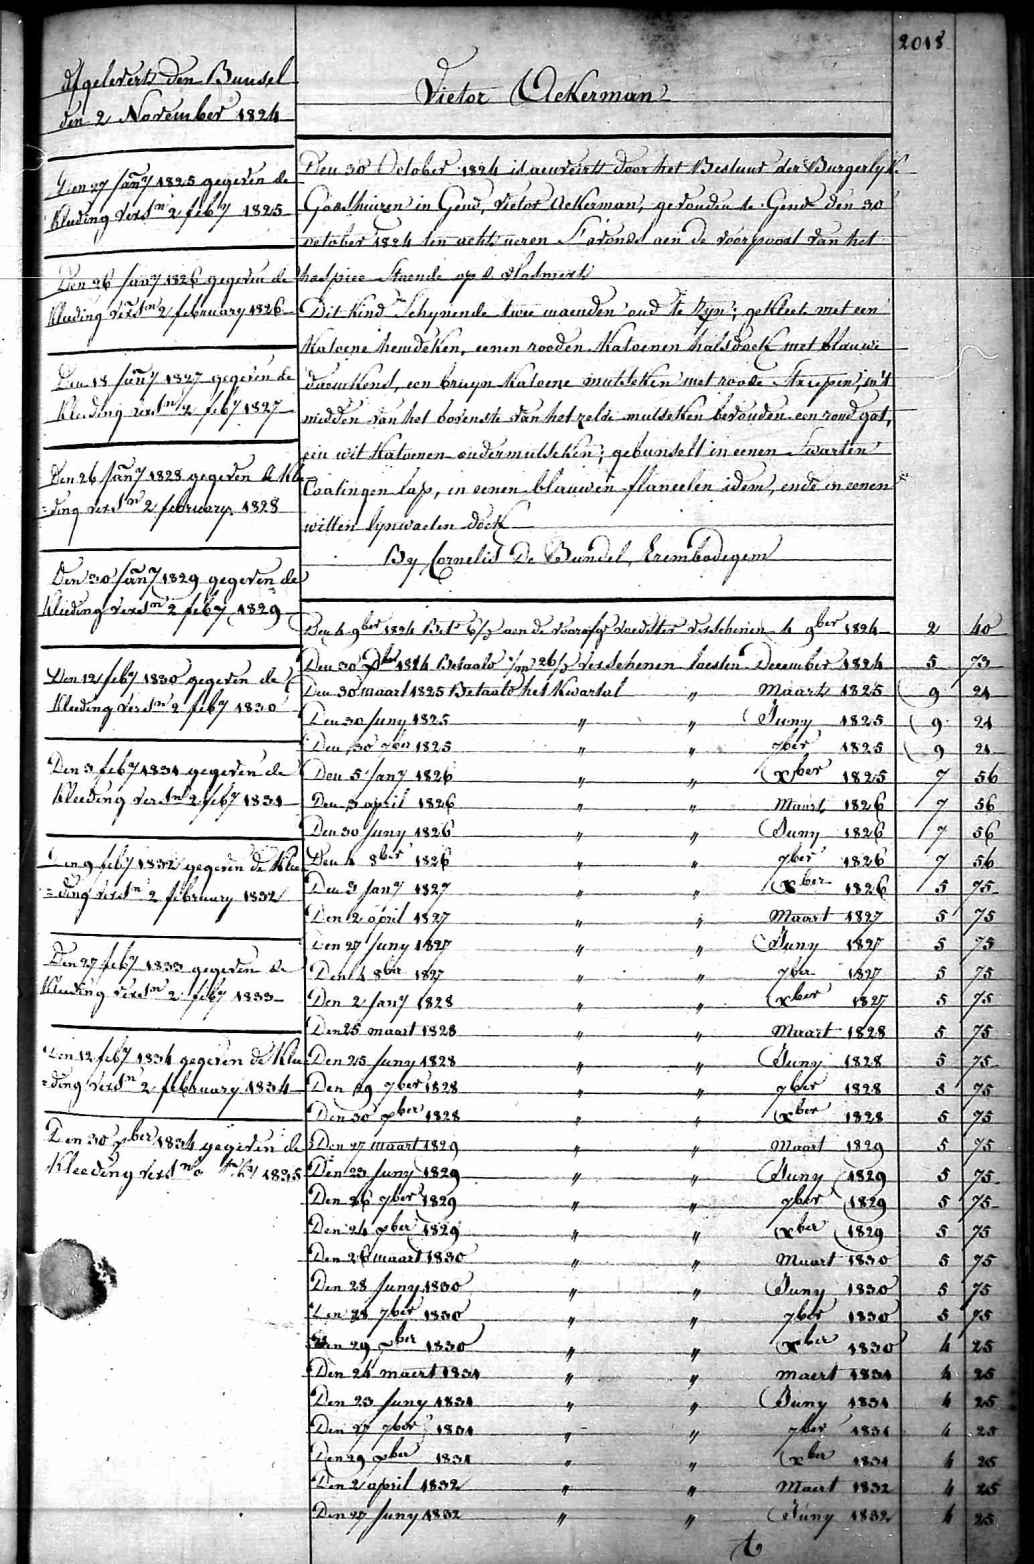 2018
Afgelevert den Bunsel
den 2 November 1824
Den 27 Jany 1825 gegeven de
kleeding verstn 2 feby 1825
Den 26 Jany 1826 gegeven de
kleeding verstn 2 february 1826
Den 18 Jany 1827 gegeven de
kleeding verstn 2 feby 1827
Den 26 Jany 1828 gegeven de klee
=ding verstn 2 february 1828
Den 30 Jany 1829 gegeven de
kleeding verstn 2 feby 1829
Den 12 feby 1830 gegeven de
kleeding verstn 2 feby 1830
Den 3 feby 1831 gegeven de
kleeding verstn 2 feby 1831
Den 9 feby 1832 gegeven de klee
=ding verstn 2 february 1832
Den 27 feby 1833 gegeven de
kleeding verstn 2 feby 1833
Den 12 feby 1834 gegeven de klee
=ding verstn 2 february 1834
Den 30 xber 1834 gegeven de
kleeding verstn 2 feby 1835
Victor Ackerman
Den 30 October 1824 is door het Bestuur der Burgerlyke
Godshuizen in Gend, Victor Ackerman, gevonden te Gend den 30
october 1824 ten acht ueren S'avonds aen de voorpoort van het
hospice Staende op d'vladmerkt
Dit kind Schynende twee maenden oud te zyn; gekleet met een
katoene hemdeken, eenen rooden katoenen halsdoek met blauwe
een bruyn katoene mutseken met roode Streepen, in't
midden van het bovenste van het zelde mutseken bevonden een rond gat,
een wit katoenen ondermutseken; gebunselt in eenen Swarten
Coatingen lap, en eenen blauwen flaneelen idem, ende in eenen
witten lynwaeten doek
By Cornelis De Bundel, Erembodegem
Den 4 9ber 1824 Bet. aen de voorige voedster verschenen 4 9ber 1824 2 40
Den 30 xber 1824 Betaald verschenen laesten December 1824 5 73
Den 30 maart 1825 Betaald het kwartal " Maart 1825 9 24
Den 30 Juny 1825 " " Juny 1825 9 24
Den 30 7ber 1825 " " 7ber 1825 9 24
Den 5 Jany 1826 " " xber 1825 7 56
Den 3 april 1826 " " Maart 1826 7 56
Den 30 Juny 1826 " " Juny 1826 7 56
Den 4 8ber 1826 " " 7ber 1826 7 56
Den 3 Jany 1827 " " xber 1826 5 75
Den 2 april 1827 " " Maart 1827 5 75
Den 27 Juny 1827 " " Juny 1827 5 75
Den 4 8ber 1827 " " 7ber 1827 5 75
Den 2 Jany 1828 " " xber 1827 5 75
Den 25 maart 1828 " " Maart 1828 5 75
Den 25 Juny 1828 " " Juny 1828 5 75
Den 29 7ber 1828 " " 7ber 1828 5 75
Den 30 xber 1828 " " xber 1828 5 75
Den 27 maart 1829 " " Maart 1829 5 75
Den 23 Juny 1829 " " Juny 1829 5 75
Den 26 7ber 1829 " " 7ber 1829 5 75
Den 24 xber 1829 " " xber 1829 5 75
Den 26 maart 1830 " " Maart 1830 5 75
Den 28 Juny 1830 " " Juny 1830 5 75
Den 28 7ber 1830 " " 7ber 1830 5 75
Den 29 xber 1830 " " xber 1830 4 25
Den 24 maert 1831 " " maert 1831 4 25
Den 23 Juny 1831 " " Juny 1831 4 25
Den 27 7ber 1831 " " 7ber 1831 4 25
Den 29 xber 1831 " " xber 1831 4 25
Den 2 april 1832 " " Maert 1832 4 25
Den 27 Juny 1832 " " Juny 1832 4 25